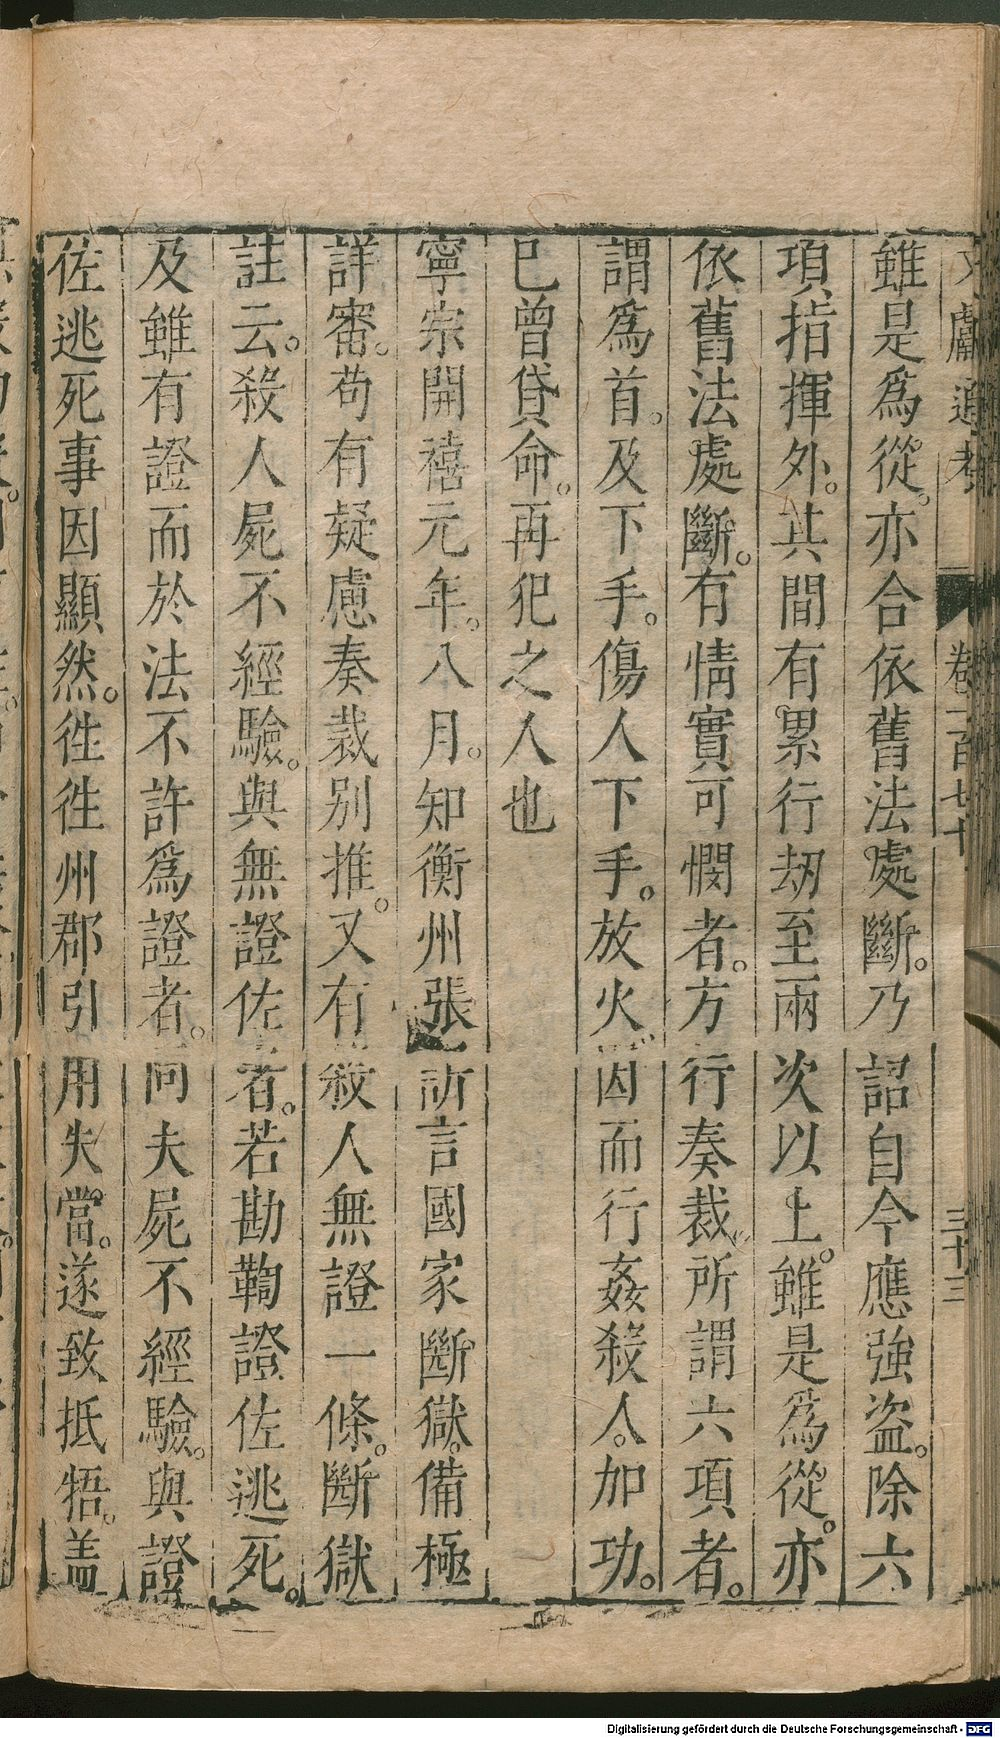 文獻通考 卷一百七十 三十三
雖是爲從。亦合依舊法處斷。乃詔自今應強盜。除六
項指揮外。其間有累行刼至兩次以上。雖是爲從。亦
依舊法處斷。有情實可憫者。方行奏裁。所謂六項者。
謂爲首。及下手。傷人下手。放火。因而行姦殺人。加功。
已曾貸命。再犯之人也
寧宗開禧元年。八月。知衡州張訢言國家斷獄。備極
詳審。苟有疑慮奏裁别推。又有殺人無證一條。斷獄
註云。殺人屍不經驗。與無證佐者。若勘鞫證佐逃死。
及雖有證而於法不許爲證者。同夫屍不經驗。與證
佐逃死事因顯然。徃徃州郡引用失當。遂致抵牾。盖
Digitalisierung gefördert durch die Deutsche Forschungsgemeinschaft - DFG